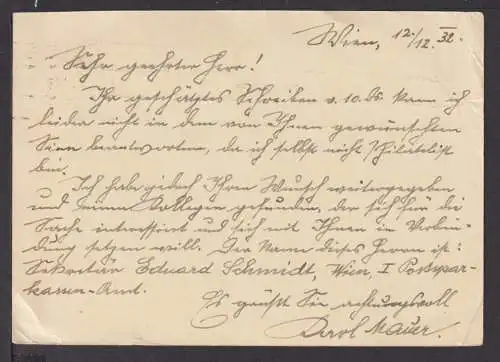 Wien, 12./12. 32.
Sehr geehrter Herr!
Ihr geschätztes Schreiben v. 10. ds. kann ich
leider nicht in dem von Ihnen gewünschten
Sinn beantworten, da ich selbst nicht Philatelist
bin.
Ich habe jedoch Ihren Wunsch weitergegeben
und einen Kollegen gefunden, der sich für die
Sache interessiert und sich mit Ihnen in Verbin-
dung setzen will. Der Name dieses Herrn ist:
Sekretär Eduard Schmidt, Wien, I Postspar-
kassen-Amt.
Es grüßt Sie achtungsvoll
Karl Mauer.